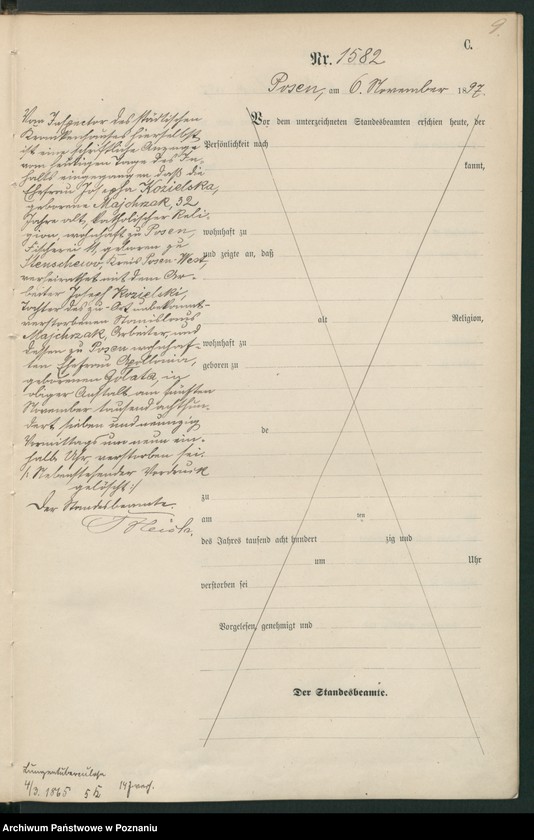 9.
C.
Nr. 1582
Posen, am 6. November 1897.
Vom Inspector des städtischen
Krankenhauses hierselbst
ist eine schriftliche Anzeige
vom heutigen Tage des In-
halts eingegangen, daß die
Ehefrau Josepha Kozielska,
geborene Majchrzak, 32
Jahre alt, katholischer Reli-
gion, wohnhaft zu Posen,
Fischerei 11, geboren zu
Stenschewo, Kreis Posen-West,
verheirathet mit dem Ar-
beiter Joseph Kozielski,
Tochter des zu Ort unbekannt
verstorbenen Stanislaus
Majchrzak, Arbeiter, und
dessen zu Posen wohnhaf-
ten Ehefrau Apollonia,
geborenen Golata, in
obiger Anstalt am fünften
November tausend achthun-
dert sieben und neunzig
Vormittags um neun ein-
halb Uhr verstorben sei.
/: Nebenstehender Vordruck
gelöscht :/
Der Standesbeamte.
Vor dem unterzeichneten Standesbeamten erschien heute, der
Persönlichkeit nach
kannt,
wohnhaft zu
und zeigte an, daß
alt Religion,
wohnhaft zu
geboren zu
de
zu
am ten
des Jahres tausend acht hundert zig und
um Uhr
verstorben sei
Vorgelesen, genehmigt und
Der Standesbeamte.
Lungentuberculose
4/3. 1865 5 K
Archiwum Państwowe w Poznaniu